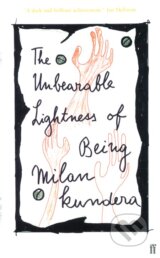 'A dark and brilliant achievement.' Ian McEwan
The
Unbearable
Lightness of
Being
Milan
Kundera
ff